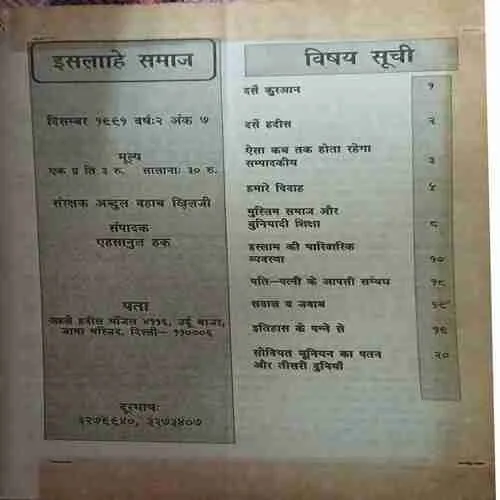 इसलाहे समाज
दिसम्बर १९९१ वर्ष:२ अंक ७
मूल्य
एक प्र ति ३ रु. सालाना: ३० रु.
संरक्षक अब्दुल वहाब खिलजी
संपादक
एहसानुल हक
पता
अहले हदीस मंजिल ४११६, उर्दू बाजार,
जामा मस्जिद, दिल्ली— ११०००६
दूरभाष:
३२७३४०७
विषय सूची
दर्से कुरआन १
दर्से हदीस २
ऐसा कब तक होता रहेगा
सम्पादकीय ३
हमारे विवाह ५
मुस्लिम समाज और
बुनियादी शिक्षा ८
इस्लाम की पारिवारिक
व्यवस्था १०
पति—पत्नी के आपसी सम्बंध १८
सवाल व जवाब
इतिहास के पन्ने से १९
सोवियत यूनियन का पतन २०
और तीसरी दुनियाँ